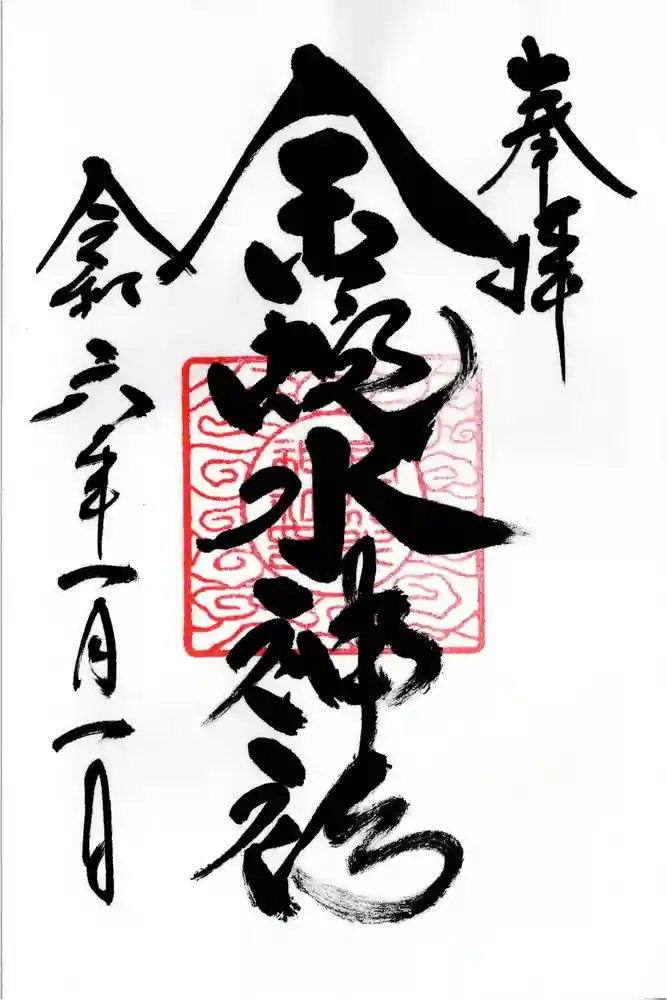 奉拝
金蛇水神社
令和六年一月一日